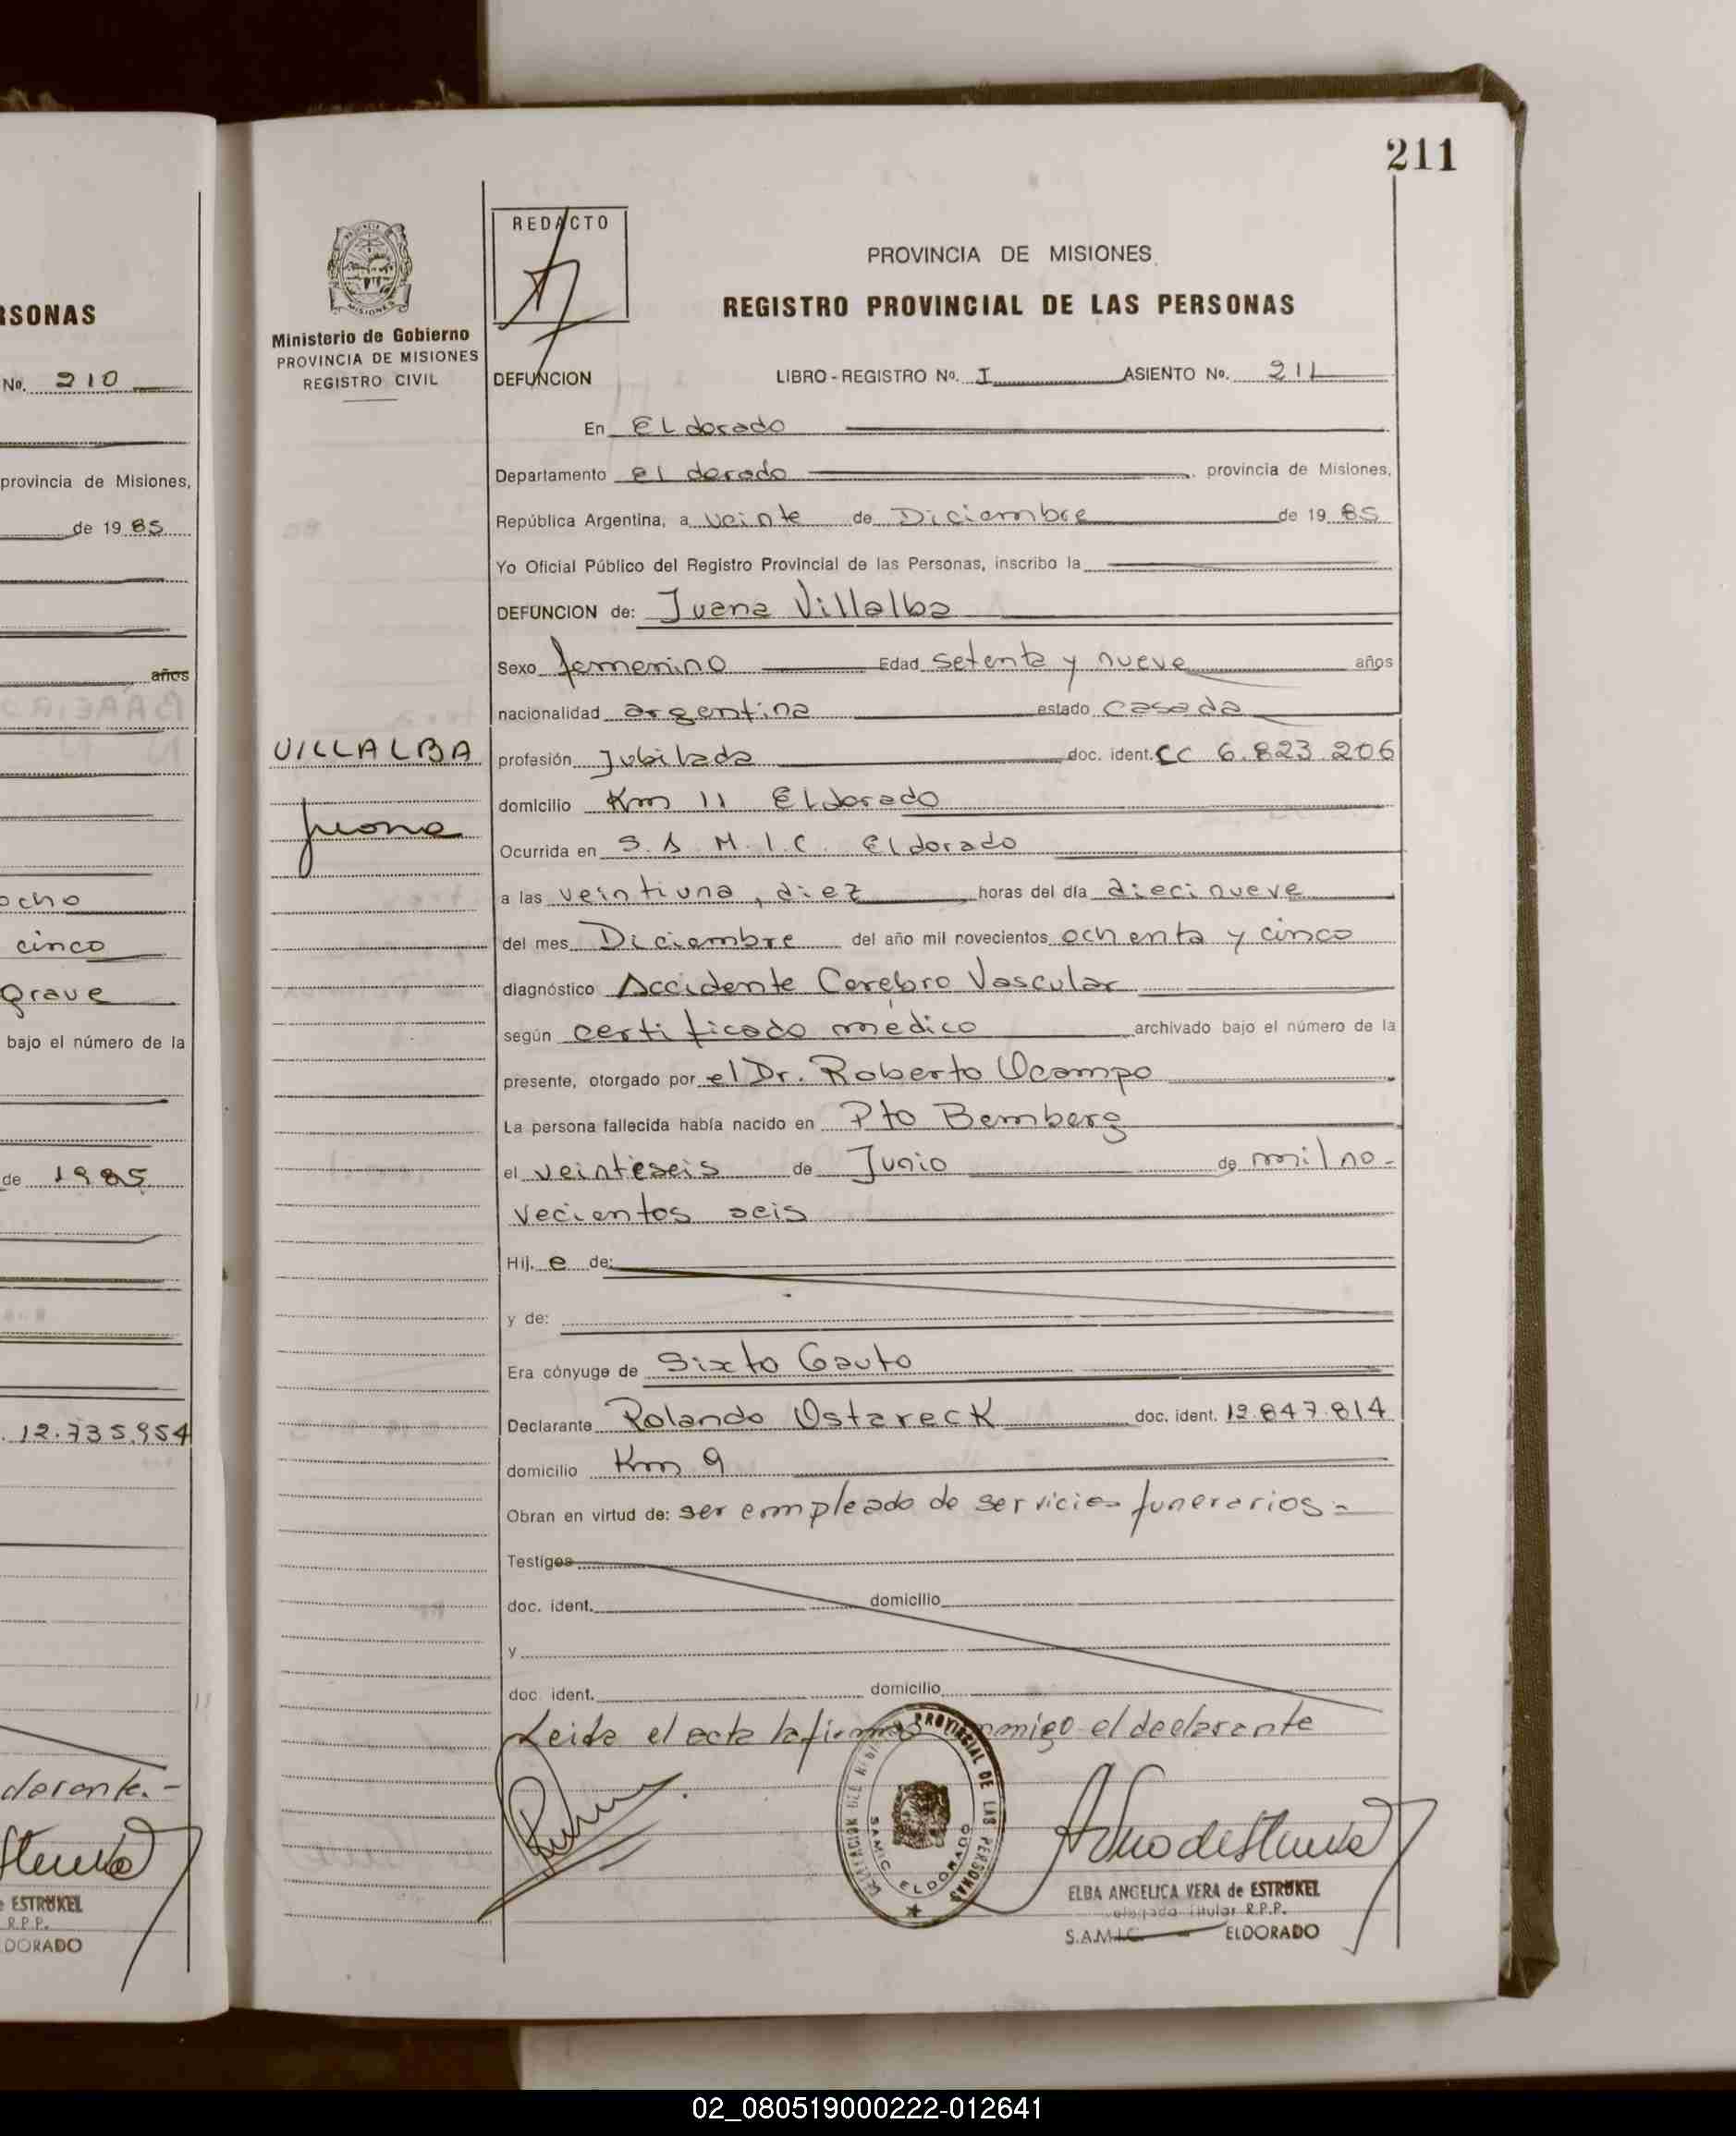 RSONAS
No. 210
provincia de Misiones,
de 19 85
años
ocho
cinco
grave
bajo el número de la
de 1985
12.735.954
ESTRUKEL
R.P.P.
DORADO
211
REDACTO
Ministerio de Gobierno
PROVINCIA DE MISIONES
REGISTRO CIVIL
PROVINCIA DE MISIONES
REGISTRO PROVINCIAL DE LAS PERSONAS
DEFUNCION LIBRO - REGISTRO No. I ASIENTO No. 211
En ELdorado
Departamento el dorado provincia de Misiones,
República Argentina, a veinte de Diciembre de 19 85
Yo Oficial Público del Registro Provincial de las Personas, inscribo la
DEFUNCION de: Juana Villalba
Sexo femenino Edad setenta y nueve años
nacionalidad argentina estado casada
VILLALBA
Juana
profesión Jubilada doc. ident. CC 6.823.206
domicilio Km 11 ELdorado
Ocurrida en S.A.M.I.C. Eldorado
a las veintiuna, diez horas del día diecinueve
del mes Diciembre del año mil novecientos ochenta y cinco
diagnóstico Accidente Cerebro Vascular
según certificado médico archivado bajo el número de la
presente, otorgado por el Dr. Roberto Ocampo
La persona fallecida había nacido en Pto Bemberg
el veintiseis de Junio de mil no-
vecientos seis
Hij. e de:
y de:
Era cónyuge de Sixto Gauto
Declarante Rolando Ostareck doc. ident. 12.847.814
domicilio Km 9
Obran en virtud de: ser empleado de servicios funerarios.-
Testigos
doc. ident. domicilio
y
doc. ident. domicilio
Leida el acta la firma conmigo el declarante
PROVINCIAL DE LAS PERSONAS
SAMIC ELDORADO
ELBA ANGELICA VERA de ESTRUKEL
Delegada Titular R.P.P.
S.A.M.I.C. - ELDORADO
02_080519000222-012641